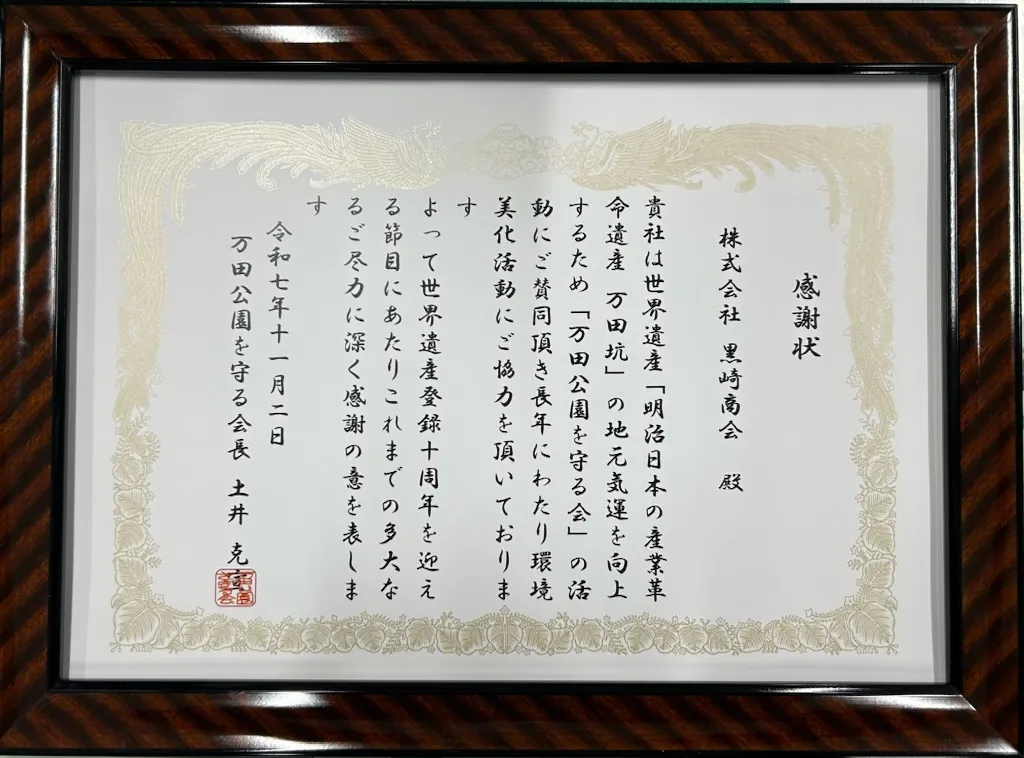 感謝状
株式会社 黒崎商会 殿
貴社は世界遺産「明治日本の産業革
命遺産 万田坑」の地元気運を向上
するため「万田公園を守る会」の活
動にご賛同頂き長年にわたり環境
美化活動にご協力を頂いておりま
す
よって世界遺産登録十周年を迎え
る節目にあたりこれまでの多大な
るご尽力に深く感謝の意を表しま
す
令和七年十一月二日
万田公園を守る会長 土井 克